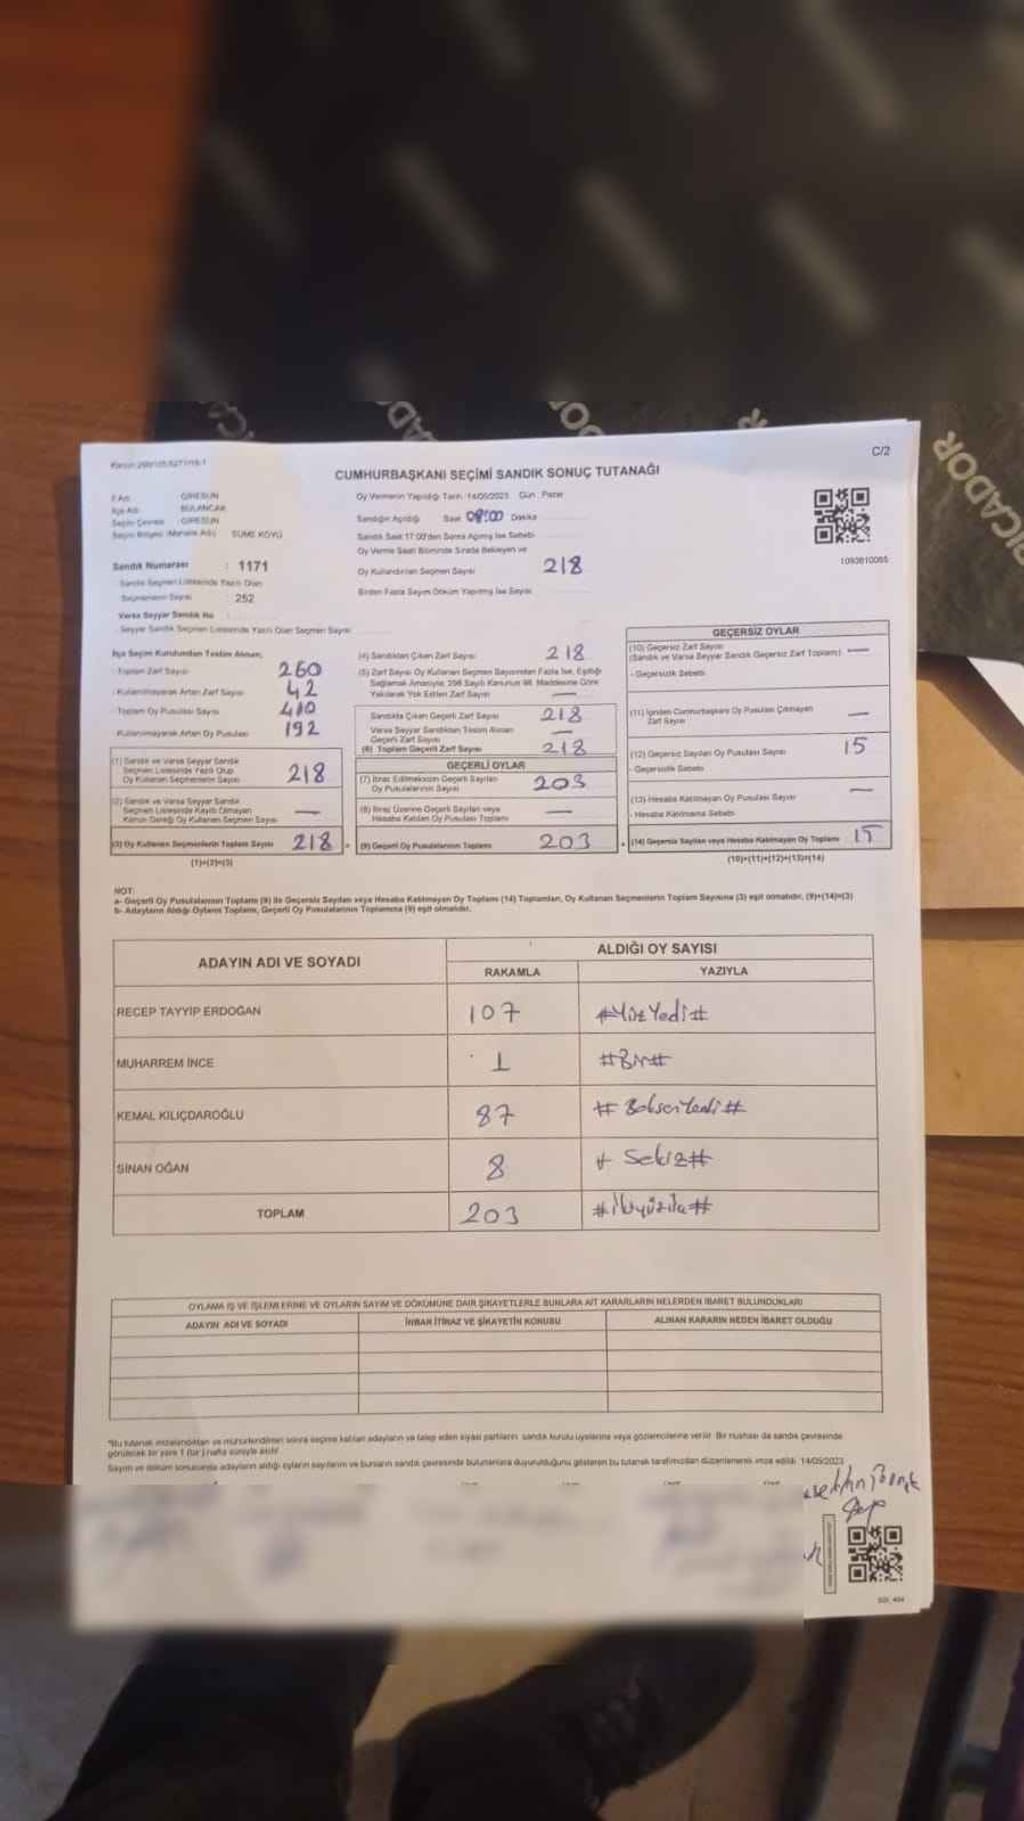 ÇADOR
C/2
CUMHURBAŞKANI SEÇİMİ SANDIK SONUÇ TUTANAĞI
İl Adı : GİRESUN
İlçe Adı : BULANCAK
Seçim Çevresi : GİRESUN
Seçim Bölgesi (Mahalle Adı) : SÜME KÖYÜ
Sandık Numarası : 1171
Sandık Seçmen Listesinde Yazılı Olan
Seçmenlerin Sayısı : 252
Varsa Seyyar Sandık No
Seyyar Sandık Seçmen Listesinde Yazılı Olan Seçmen Sayısı
Oy Vermenin Yapıldığı Tarih : 14/05/2023 Gün : Pazar
Sandığın Açıldığı Saat 08:00 Dakika
Sandık Saat 17:00'den Sonra Açılmış İse Sebebi
Oy Verme Saati Bitiminde Sırada Bekleyen ve
Oy Kullandırılan Seçmen Sayısı 218
Birden Fazla Sayım Döküm Yapılmış İse Sayısı
1093610065
İlçe Seçim Kurulundan Teslim Alınan;
-Toplam Zarf Sayısı 260
-Kullanılmayarak Artan Zarf Sayısı 42
-Toplam Oy Pusulası Sayısı 410
-Kullanılmayarak Artan Oy Pusulası 192
(1) Sandık ve Varsa Seyyar Sandık
Seçmen Listesinde Yazılı Olup
Oy Kullanan Seçmenlerin Sayısı 218
(2) Sandık ve Varsa Seyyar Sandık
Seçmen Listesinde Kayıtlı Olmayan
Kanun Gereği Oy Kullanan Seçmen Sayısı —
(3) Oy Kullanan Seçmenlerin Toplam Sayısı 218
(1)+(2)=(3)
(4) Sandıktan Çıkan Zarf Sayısı 218
(5) Zarf Sayısı Oy Kullanan Seçmen Sayısından Fazla İse, Eşitliği
Sağlamak Amacıyla, 298 Sayılı Kanunun 98. Maddesine Göre
Yakılarak Yok Edilen Zarf Sayısı —
Sandıkta Çıkan Geçerli Zarf Sayısı 218
Varsa Seyyar Sandıktan Teslim Alınan
Geçerli Zarf Sayısı —
(6) Toplam Geçerli Zarf Sayısı 218
GEÇERLİ OYLAR
(7) İtiraz Edilmeksizin Geçerli Sayılan
Oy Pusulalarının Sayısı 203
(8) İtiraz Üzerine Geçerli Sayılan veya
Hesaba Katılan Oy Pusulası Toplamı —
(9) Geçerli Oy Pusulalarının Toplamı 203
GEÇERSİZ OYLAR
(10) Geçersiz Zarf Sayısı
(Sandık ve Varsa Seyyar Sandık Geçersiz Zarf Toplamı) —
- Geçersizlik Sebebi:
(11) İçinden Cumhurbaşkanı Oy Pusulası Çıkmayan
Zarf Sayısı —
(12) Geçersiz Sayılan Oy Pusulası Sayısı 15
- Geçersizlik Sebebi:
(13) Hesaba Katılmayan Oy Pusulası Sayısı —
- Hesaba Katılmama Sebebi:
(14) Geçersiz Sayılan veya Hesaba Katılmayan Oy Toplamı 15
(10)+(11)+(12)+(13)=(14)
NOT:
a- Geçerli Oy Pusulalarının Toplamı (9) ile Geçersiz Sayılan veya Hesaba Katılmayan Oy Toplamı (14) Toplamları, Oy Kullanan Seçmenlerin Toplam Sayısına (3) eşit olmalıdır. (9)+(14)=(3)
b- Adayların Aldığı Oyların Toplamı, Geçerli Oy Pusulalarının Toplamına (9) eşit olmalıdır.
ADAYIN ADI VE SOYADI
ALDIĞI OY SAYISI
RAKAMLA YAZIYLA
RECEP TAYYİP ERDOĞAN 107 #YüzYedi#
MUHARREM İNCE 1 #Bir#
KEMAL KILIÇDAROĞLU 87 #SeksenYedi#
SİNAN OĞAN 8 # Sekiz#
TOPLAM 203 #ikiyüzüç#
OYLAMA İŞ VE İŞLEMLERİNE VE OYLARIN SAYIM VE DÖKÜMÜNE DAİR ŞİKAYETLERLE BUNLARA AİT KARARLARIN NELERDEN İBARET BULUNDUKLARI
ADAYIN ADI VE SOYADI İNBAH İTİRAZ VE ŞİKAYETİN KONUSU ALINAN KARARIN NEDEN İBARET OLDUĞU
*Bu tutanak imzalandıktan ve mühürlendikten sonra seçime katılan adayların ve talep eden siyasi partilerin sandık kurulu üyelerine veya gözlemcilerine verilir. Bir nüshası da sandık çevresinde
görülecek bir yere 1 (bir) hafta süreyle asılır.
Sayım ve döküm sonucunda adayların aldığı oyların sayılarını ve bunların sandık çevresinde bulunanlara duyurulduğunu gösteren bu tutanak tarafımızdan düzenlenerek imza edildi. 14/05/2023